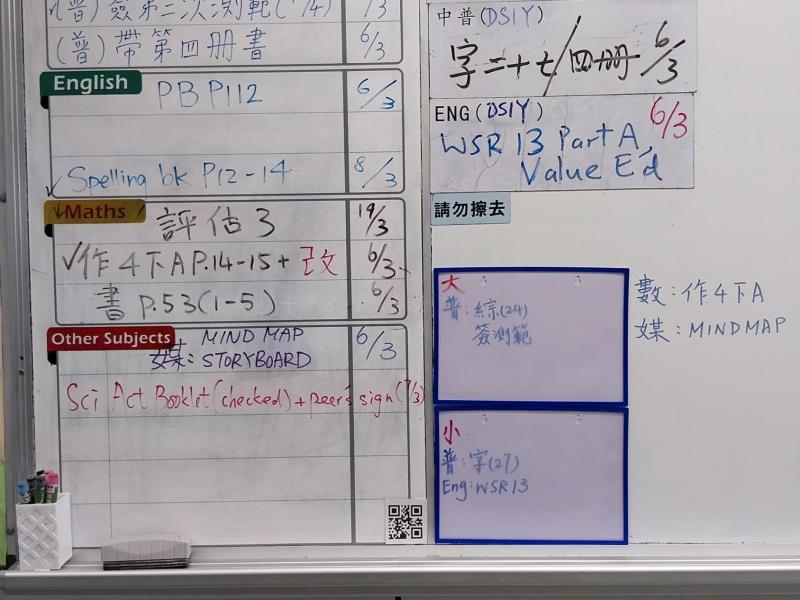 (普)簽第二次測範(1/4) /3
(普)帶第四冊書 6/3
English
PB P112 6/3
✓ Spelling bk P12-14 8/3
Maths
評估3 19/3
✓作4下A P.14-15+ 改 6/3
書 P.53(1-5) 6/3
Other Subjects
MIND MAP 6/3
媒: STORYBOARD
Sci Act Booklet(checked)+peer's sign(7/3)
中普(DSIY)
字二十七/四冊 6/3
ENG(DSIY) 6/3
WSR 13 Part A,
Value E'd
請勿擦去
大
普:綜(24)
簽測範
小
普:字(27)
Eng:WSR13
數:作4下A
媒:MINDMAP